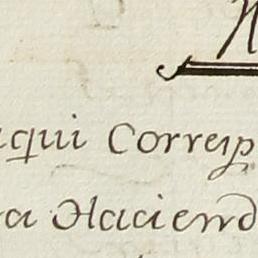 aqui Corresp
ra Haciend